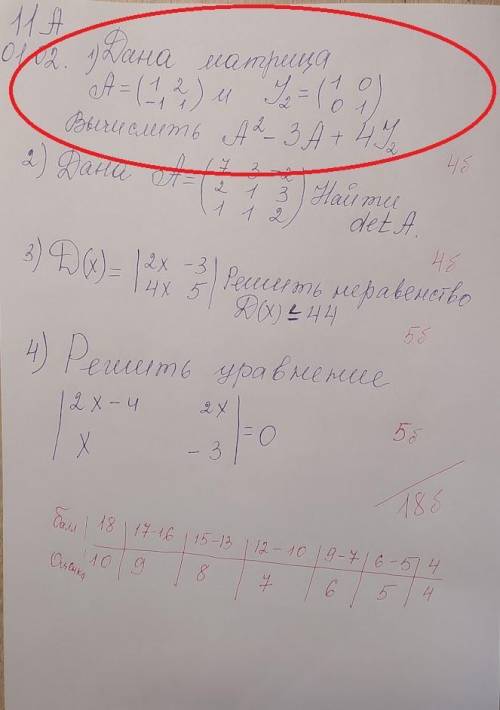 11А
01.02. 1) Дана матрица
A = (1 2
-1 1) и I₂ = (1 0
0 1)
Вычислить A² - 3A + 4I₂
4б
2) Дана A = (7 3 -2
2 1 3
1 1 2) Найти
det A.
4б
3) D(x) = |2x -3
4x 5| Решить неравенство
D(x) ≤ 44
5б
4) Решить уравнение
|2x - 4 2x
x -3| = 0
5б
18б
Балл 18 17-16 15-13 12-10 9-7 6-5 4
Оценка 10 9 8 7 6 5 4